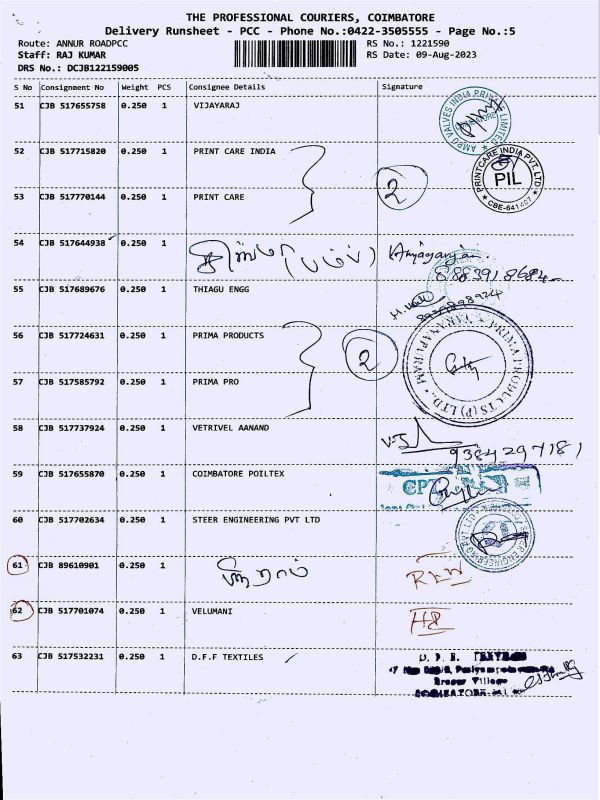 THE PROFESSIONAL COURIERS, COIMBATORE
Delivery Runsheet - PCC - Phone No.:0422-3505555 - Page No.:5
Route: ANNUR ROADPCC RS No.: 1221590
Staff: RAJ KUMAR RS Date: 09-Aug-2023
DRS No.: DCJB122159005
S No Consignment No Weight PCS Consignee Details Signature
51 CJB 517655758 0.250 1 VIJAYARAJ
AMPO VALVES INDIA PRIVATE LIMITED
52 CJB 517715820 0.250 1 PRINT CARE INDIA
PRINTCARE INDIA PVT. LTD
PIL
53 CJB 517770144 0.250 1 PRINT CARE 2
54 CJB 517644938 0.250 1
8883918684
55 CJB 517689676 0.250 1 THIAGU ENGG
56 CJB 517724631 0.250 1 PRIMA PRODUCTS 2
PRIMA PRODUCTS (P) LTD.
57 CJB 517585792 0.250 1 PRIMA PRO
58 CJB 517737924 0.250 1 VETRIVEL AANAND
9384297181
59 CJB 517655870 0.250 1 COIMBATORE POILTEX
CPT
60 CJB 517702634 0.250 1 STEER ENGINEERING PVT LTD
61 CJB 89610901 0.250 1
62 CJB 517701074 0.250 1 VELUMANI
63 CJB 517532231 0.250 1 D.F.F TEXTILES